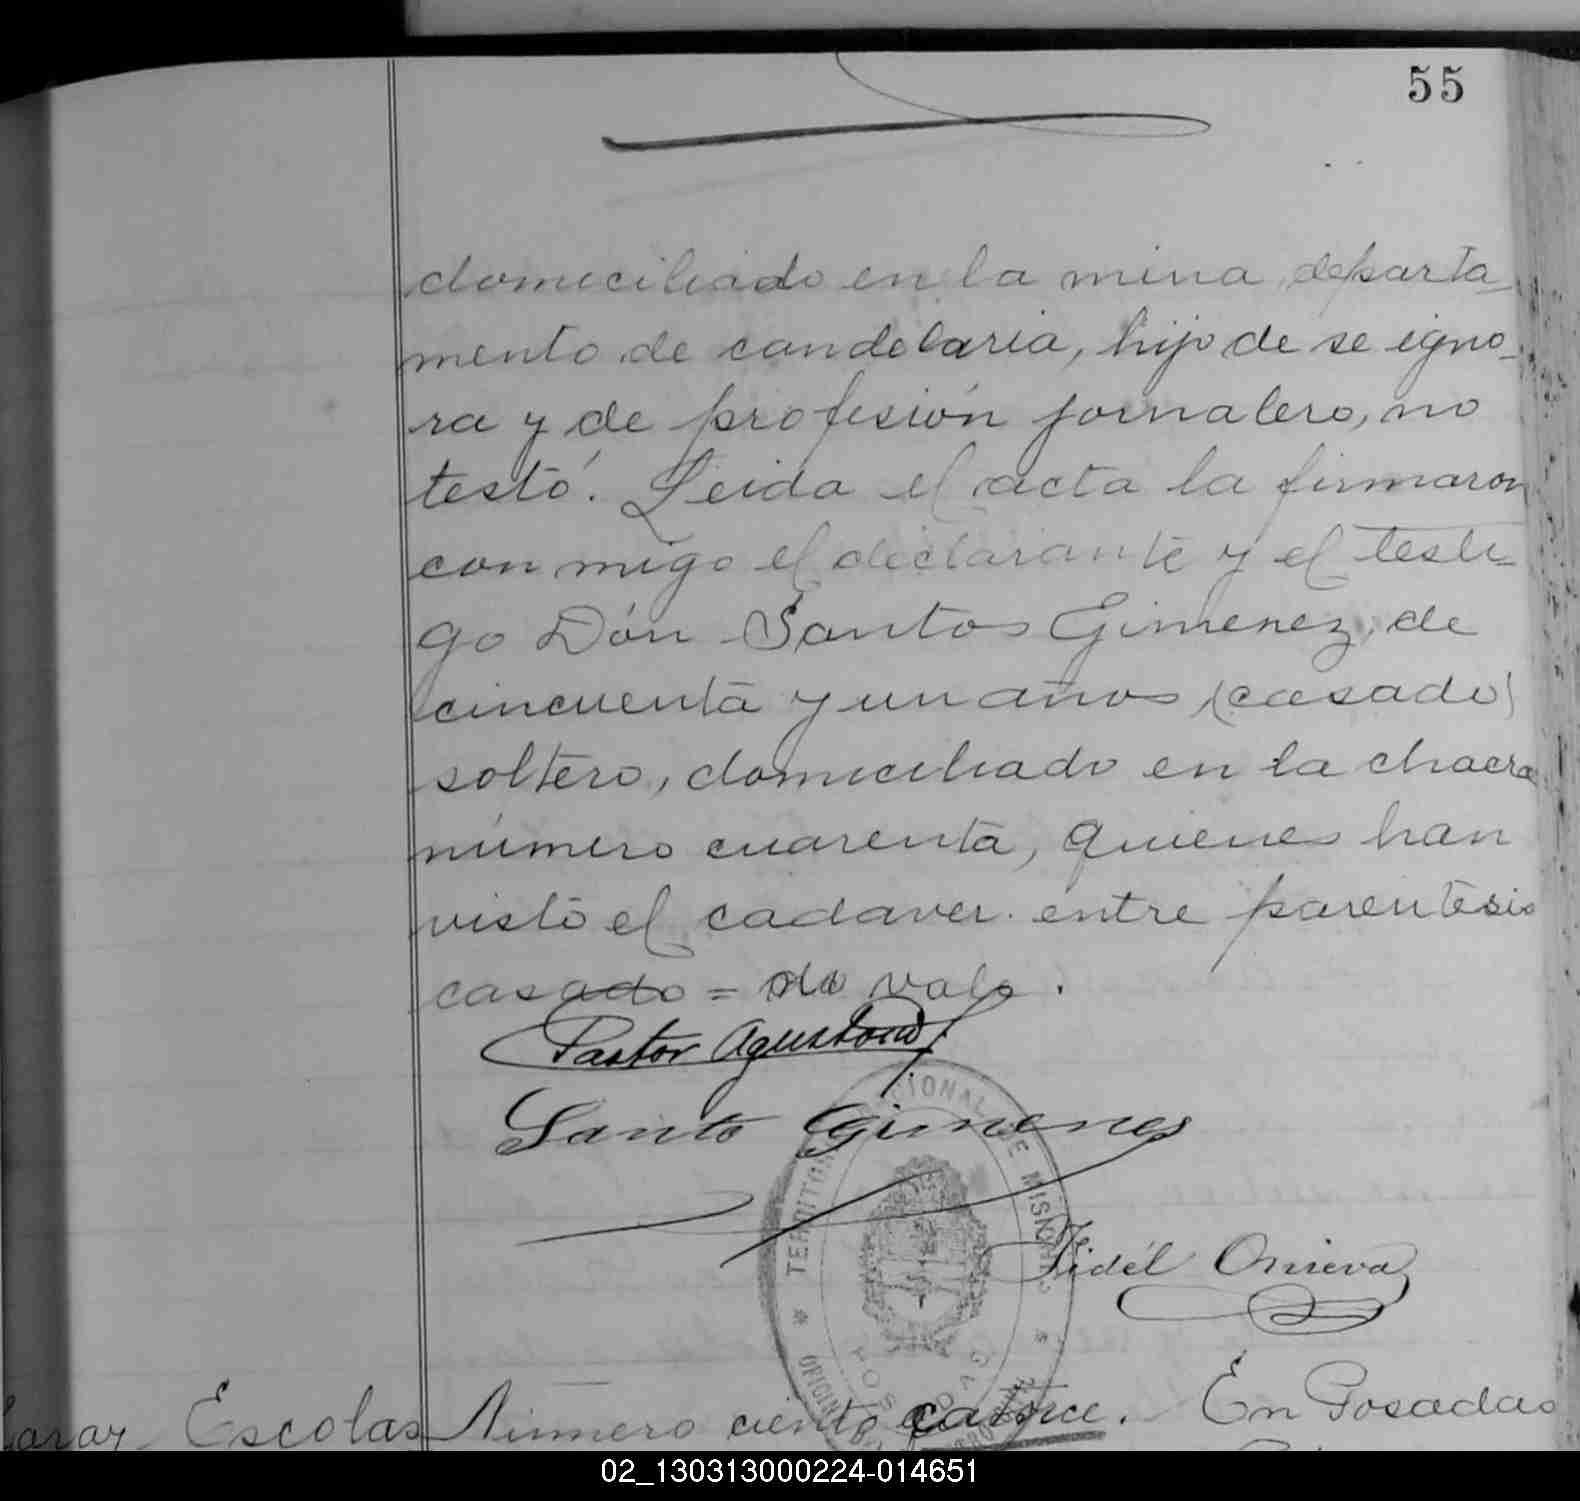 55
domiciliado en la mina, departa-
mento de candelaria, hijo de se igno-
ra y de profesión jornalero, no
testó. Leida el acta la firmaron
con migo el declarante y el testi-
go Dón Santos Gimenez, de
cincuenta y un años (casado)
soltero, domiciliado en la chacra
número cuarenta, quienes han
visto el cadaver. entre parentesis
casado = no vale.
Pastor
Santo Gimenes
TERRITORIO NACIONAL DE MISIONES
POSADAS
Fidél Onieva
Escolas Número ciento catorce. En Posadas
02_130313000224-014651